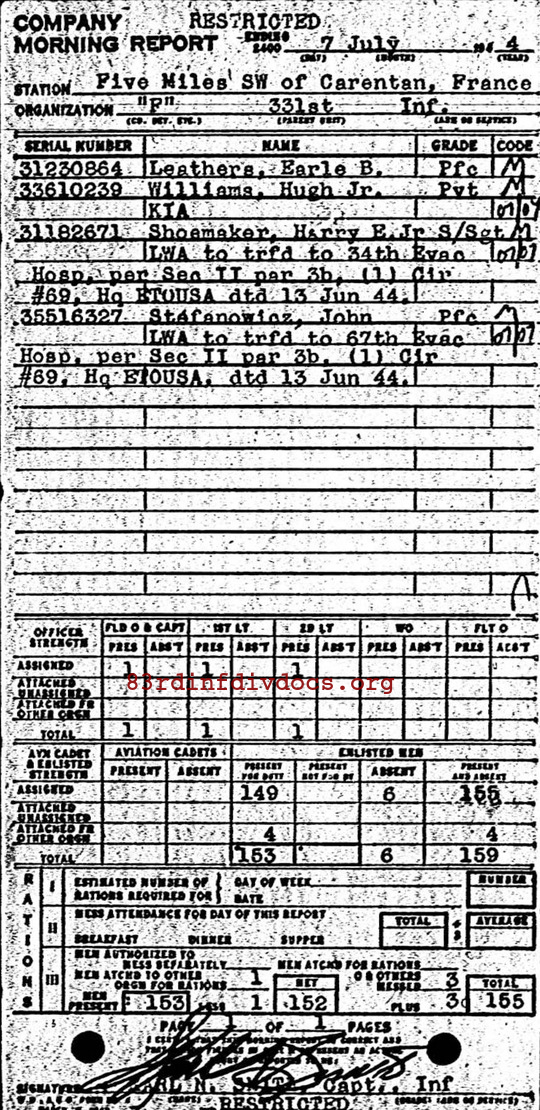 COMPANY RESTRICTED
MORNING REPORT ENDING 2400 7 July 194 4
(DAY) (MONTH) (YEAR)
STATION Five Miles SW of Carentan, France
ORGANIZATION "F" 331st Inf.
(CO. DET. ETC.) (PARENT UNIT) (ARM OR SERVICE)
SERIAL NUMBER NAME GRADE CODE
31230864 Leathers, Earle B. Pfc M
33610239 Williams, Hugh Jr. Pvt M
KIA
31182671 Shoemaker, Harry E.Jr S/Sgt M
LWA to trfd to 34th Evac
Hosp. per Sec II par 3b, (1) Cir
#69, Hq ETOUSA dtd 13 Jun 44.
35516327 Stefanowicz, John Pfc M
LWA to trfd to 67th Evac
Hosp. per Sec II par 3b, (1) Cir
#69, Hq ETOUSA, dtd 13 Jun 44.
OFFICER STRENGTH FLD O & CAPT 1ST LT 2D LT WO FLT O
PRES ABS'T PRES ABS'T PRES ABS'T PRES ABS'T PRES ABS'T
ASSIGNED 1 1 1
83rdinfdivdocs.org
ATTACHED UNASSIGNED
ATTACHED FR OTHER ORGN
TOTAL 1 1 1
AVN CADET & ENLISTED STRENGTH AVIATION CADETS ENLISTED MEN
PRESENT ABSENT PRESENT FOR DUTY PRESENT NOT FOR DY ABSENT PRESENT AND ABSENT
ASSIGNED 149 6 155
ATTACHED UNASSIGNED
ATTACHED FR OTHER ORGN 4 4
TOTAL 153 6 159
RATIONS
I ESTIMATED NUMBER OF RATIONS REQUIRED FOR DAY OF WEEK DATE NUMBER
II MESS ATTENDANCE FOR DAY OF THIS REPORT TOTAL ÷ 3 AVERAGE
BREAKFAST DINNER SUPPER
III MEN AUTHORIZED TO MESS SEPARATELY MEN ATCHD FOR RATIONS
MEN ATCHD TO OTHER ORGN FOR RATIONS 1 NET OR OTHERS MESSED 3 TOTAL
MEN PRESENT 153 LESS 1 152 PLUS 3 155
PAGE 1 OF 1 PAGES
SIGNATURE EARL N. Capt., Inf
RESTRICTED